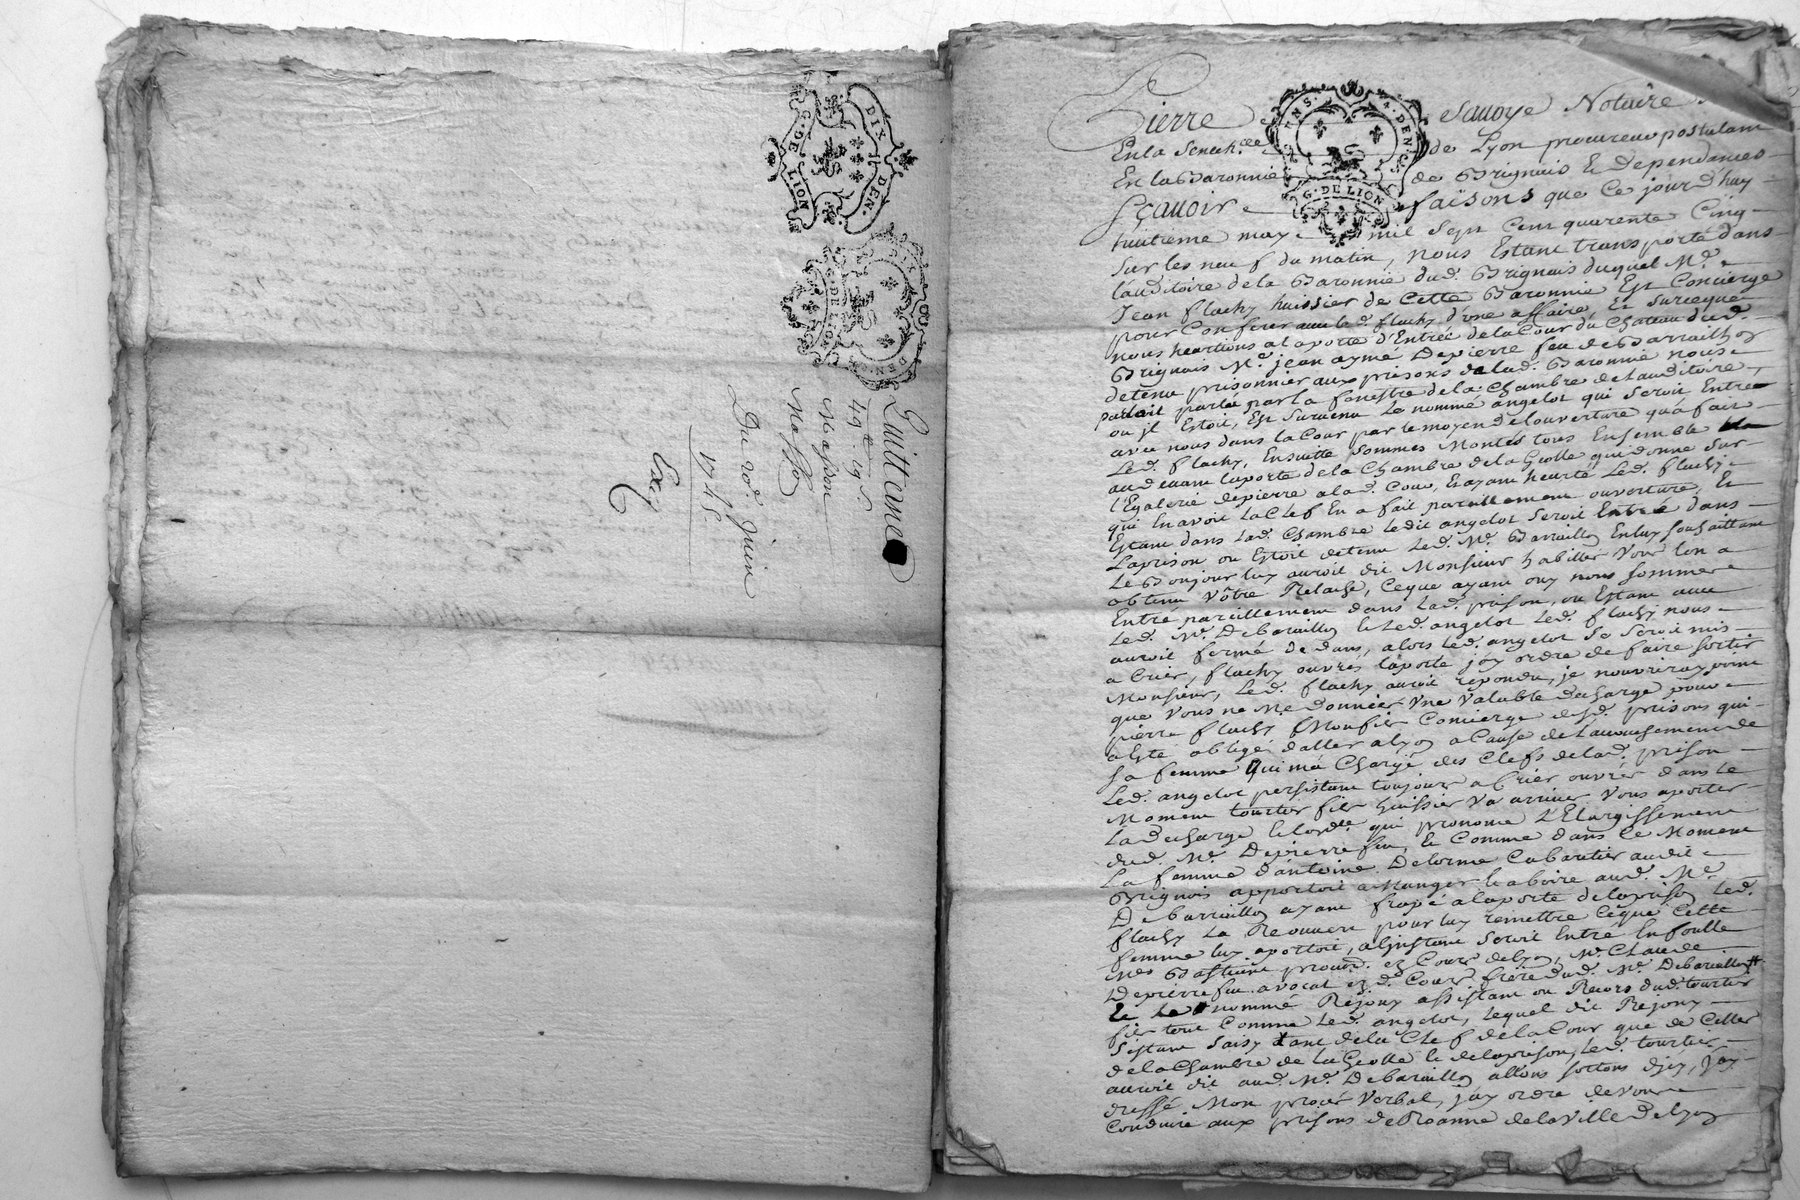 G. DE LION
DIX DEN.
DIX DEN.
G. DE LION
Quittance
49tt 19s
Masson
Du 20e. Juin
1745
Exp
4. DEN.
G. DE LION
Pierre Sauoye Notaire
En la Senech.ée de Lyon procureur postulant
En la Baronnie de Brignais & Dependances
sçauoir faisons que Ce jourd'huy
huitieme may mil sept Cent quarente Cinq
sur les neuf du matin, nous Estant transporté dans
l'auditoire de la Baronnie dud. Brignais duquel Me.
Jean flachy huissier de Cette Baronnie Est Concierge
pour Conferer auec led. flachy d'une affaire, Et sur ce que
nous heurtions a la porte d'Entrée de la Cour du Chateau dud.
Brignais Me. jean aymé Depierre feu de Barrailhon
detenu prisonnier aux prisons de lad. Baronnie nous
parloit par la fenestre de la Chambre de l'auditoire,
ou jl Estoit, Est suruenu Le nommé angelot qui seroit Entré
auec nous dans la Cour par le moyen de l'ouverture qu'a fait
Led. flachy, Ensuitte sommes Montés tous Ensemble
au deuant la porte de la Chambre de la Geolle qui donne sur
l'Egalerie depierre a lad. Cour, Et ayant heurté Led. flachy
qui En avoit La Clef En a fait pareillement ouverture, Et
Estant dans lad. Chambre ledit angelot seroit Entré dans
La prison ou Estoit detenu Led. Me. Barraillon En luy souhaittant
Le Bonjour luy auroit dit Monsieur habillés Vous lon a
obtenu vôtre Relache, Ceque ayant ouy nous sommes
Entré pareillement dans lad. prison, ou Estant auec
Led. Me. Debaraillon & Led. angelot Led. flachy nous
auroit fermé dedans, alors Led. angelot se seroit mis
a Crier, flachy ouvrés la porte j'ay ordre de faire sortir
Monsieur, Led. flachy auroit repondu, je n'ouvriray point
que Vous ne Me donniés Vne Valable decharge pour
pierre flachy Mon fils Concierge desd. prisons qui
a Esté obligé d'aller a Lyon a Cause de l'accouchement de
sa femme Qui m'a Chargé des Clefs de lad. prison
Led. angelot persistant toujours a Crier ouvrés dans le
Moment tourtier fils huissier Va arriver Vous aporter
La decharge & l'ord.ce qui prononce l'Elargissement
dud. Me. Depierre feu, & Comme dans Ce Moment
La femme d'antoine Delorme Cabaretier audit
Brignais apportoit a Manger & a boire aud. Me.
Debarraillon ayant frapé a la porte de la prison Led.
flachy La Reouvert pour luy remettre Ceque Cette
femme luy aportoit, a l'instant seroit Entré En foulle
Mes Bastiene procur. ez Cours de Lyon, Me. Claude
Depierre feu avocat ezd. Cours frere dud. Me. Debaraillon
& Le nommé Réjouy assistant ou Recors dud. tourtier
fils tout Comme Led. angelot, lequel dit Rejouy
s'Estant saisy tant de la Clef de la Cour que de Celles
de la Chambre de la Geolle & de la prison, Led. tourtier
auroit dit aud. Me. Debaraillon allons sortons d'jcy, j'ay
dressé Mon procés Verbal, j'ay ordre de vous
Conduire aux prisons de Roanne de la Ville de Lyon